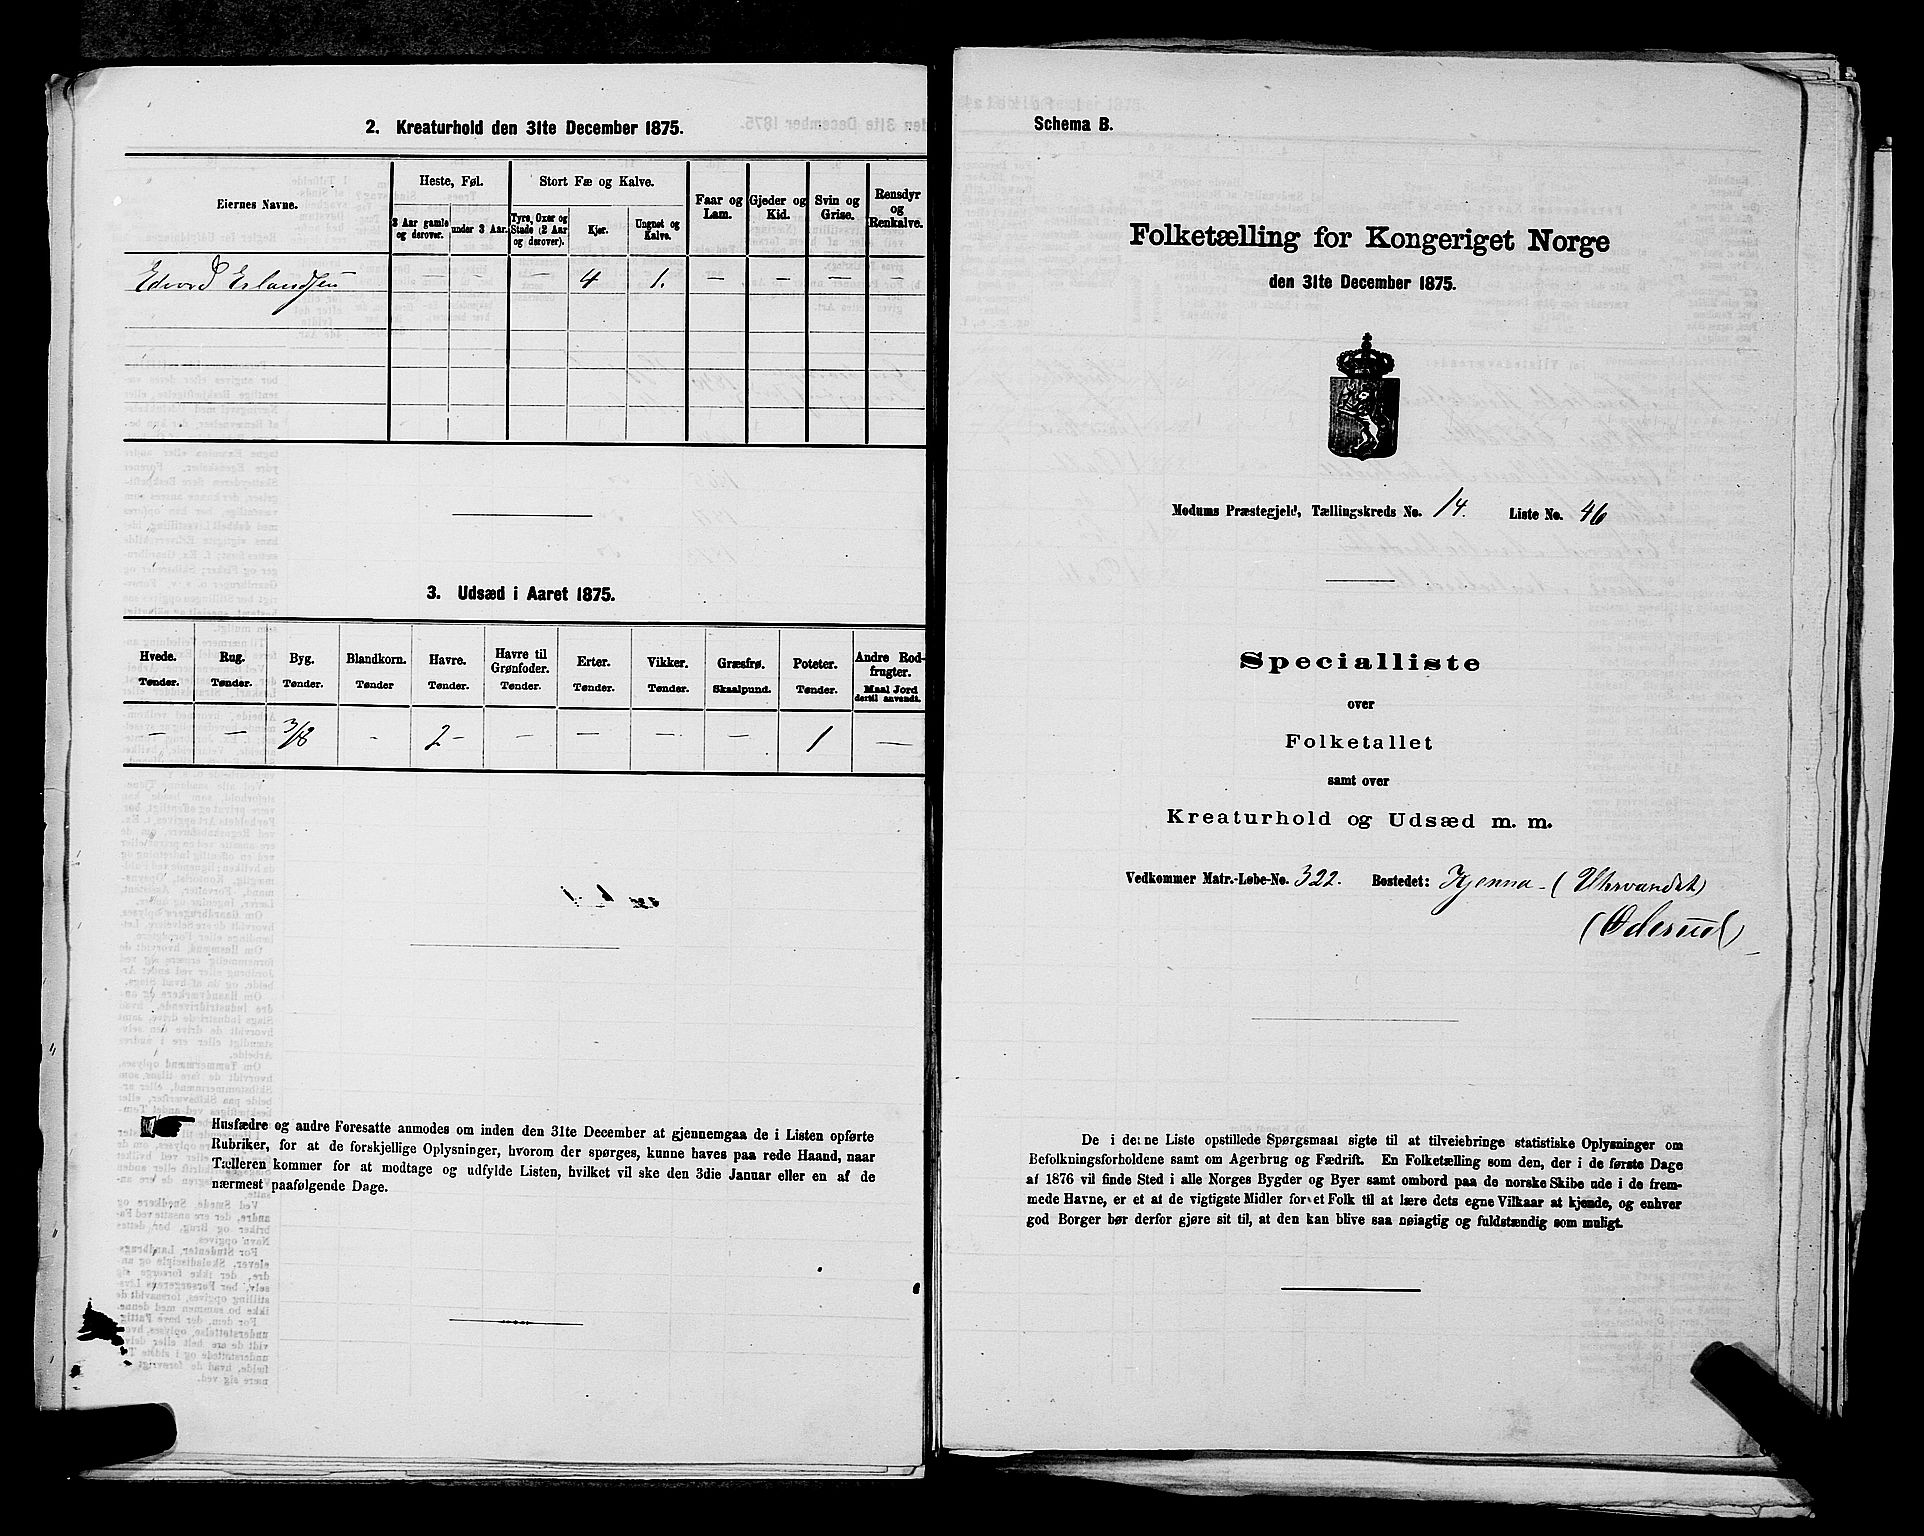 2. Kreaturhold den 31te December 1875.
Eiernes Navne.
Heste, Føl.
Stort Fæ og Kalve.
Faar og Lam.
Gjeder og Kid.
Svin og Grise.
Rensdyr og Renkalve.
3 Aar gamle og derover.
under 3 Aar.
Tyre, Oxer og Stude (2 Aar og derover).
Kjør.
Ungnøt og Kalve.
Edvard Erlandsen — — — 4 1. — — — —
3. Udsæd i Aaret 1875.
Hvede. Rug. Byg. Blandkorn. Havre. Havre til Grønfoder. Erter. Vikker. Græsfrø. Poteter. Andre Rodfrugter.
Tønder. Tønder. Tønder. Tønder Tønder. Tønder. Tønder. Tønder. Skaalpund. Tønder. Maal Jord dertil anvendt.
— — 3/8 - 2 - — — — — 1 —
Husfædre og andre Foresatte anmodes om inden den 31te December at gjennemgaa de i Listen opførte
Rubriker, for at de forskjellige Oplysninger, hvorom der spørges, kunne haves paa rede Haand, naar
Tælleren kommer for at modtage og udfylde Listen, hvilket vil ske den 3die Januar eller en af de
nærmest paafølgende Dage.
Schema B.
Folketælling for Kongeriget Norge
den 31te December 1875.
Modums Præstegjeld, Tællingskreds No. 14. Liste No. 46
Specialliste
over
Folketallet
samt over
Kreaturhold og Udsæd m. m.
Vedkommer Matr.-Løbe-No. 322. Bostedet: Kjenna - (Uhrvandet)
(Øderud)
De i denne Liste opstillede Spørgsmaal sigte til at tilveiebringe statistiske Oplysninger om
Befolkningsforholdene samt om Agerbrug og Fædrift. En Folketælling som den, der i de første Dage
af 1876 vil finde Sted i alle Norges Bygder og Byer samt ombord paa de norske Skibe ude i de frem-
mede Havne, er et af de vigtigste Midler for et Folk til at lære dets egne Vilkaar at kjende, og enhver
god Borger bør derfor gjøre sit til, at den kan blive saa nøiagtig og fuldstændig som muligt.